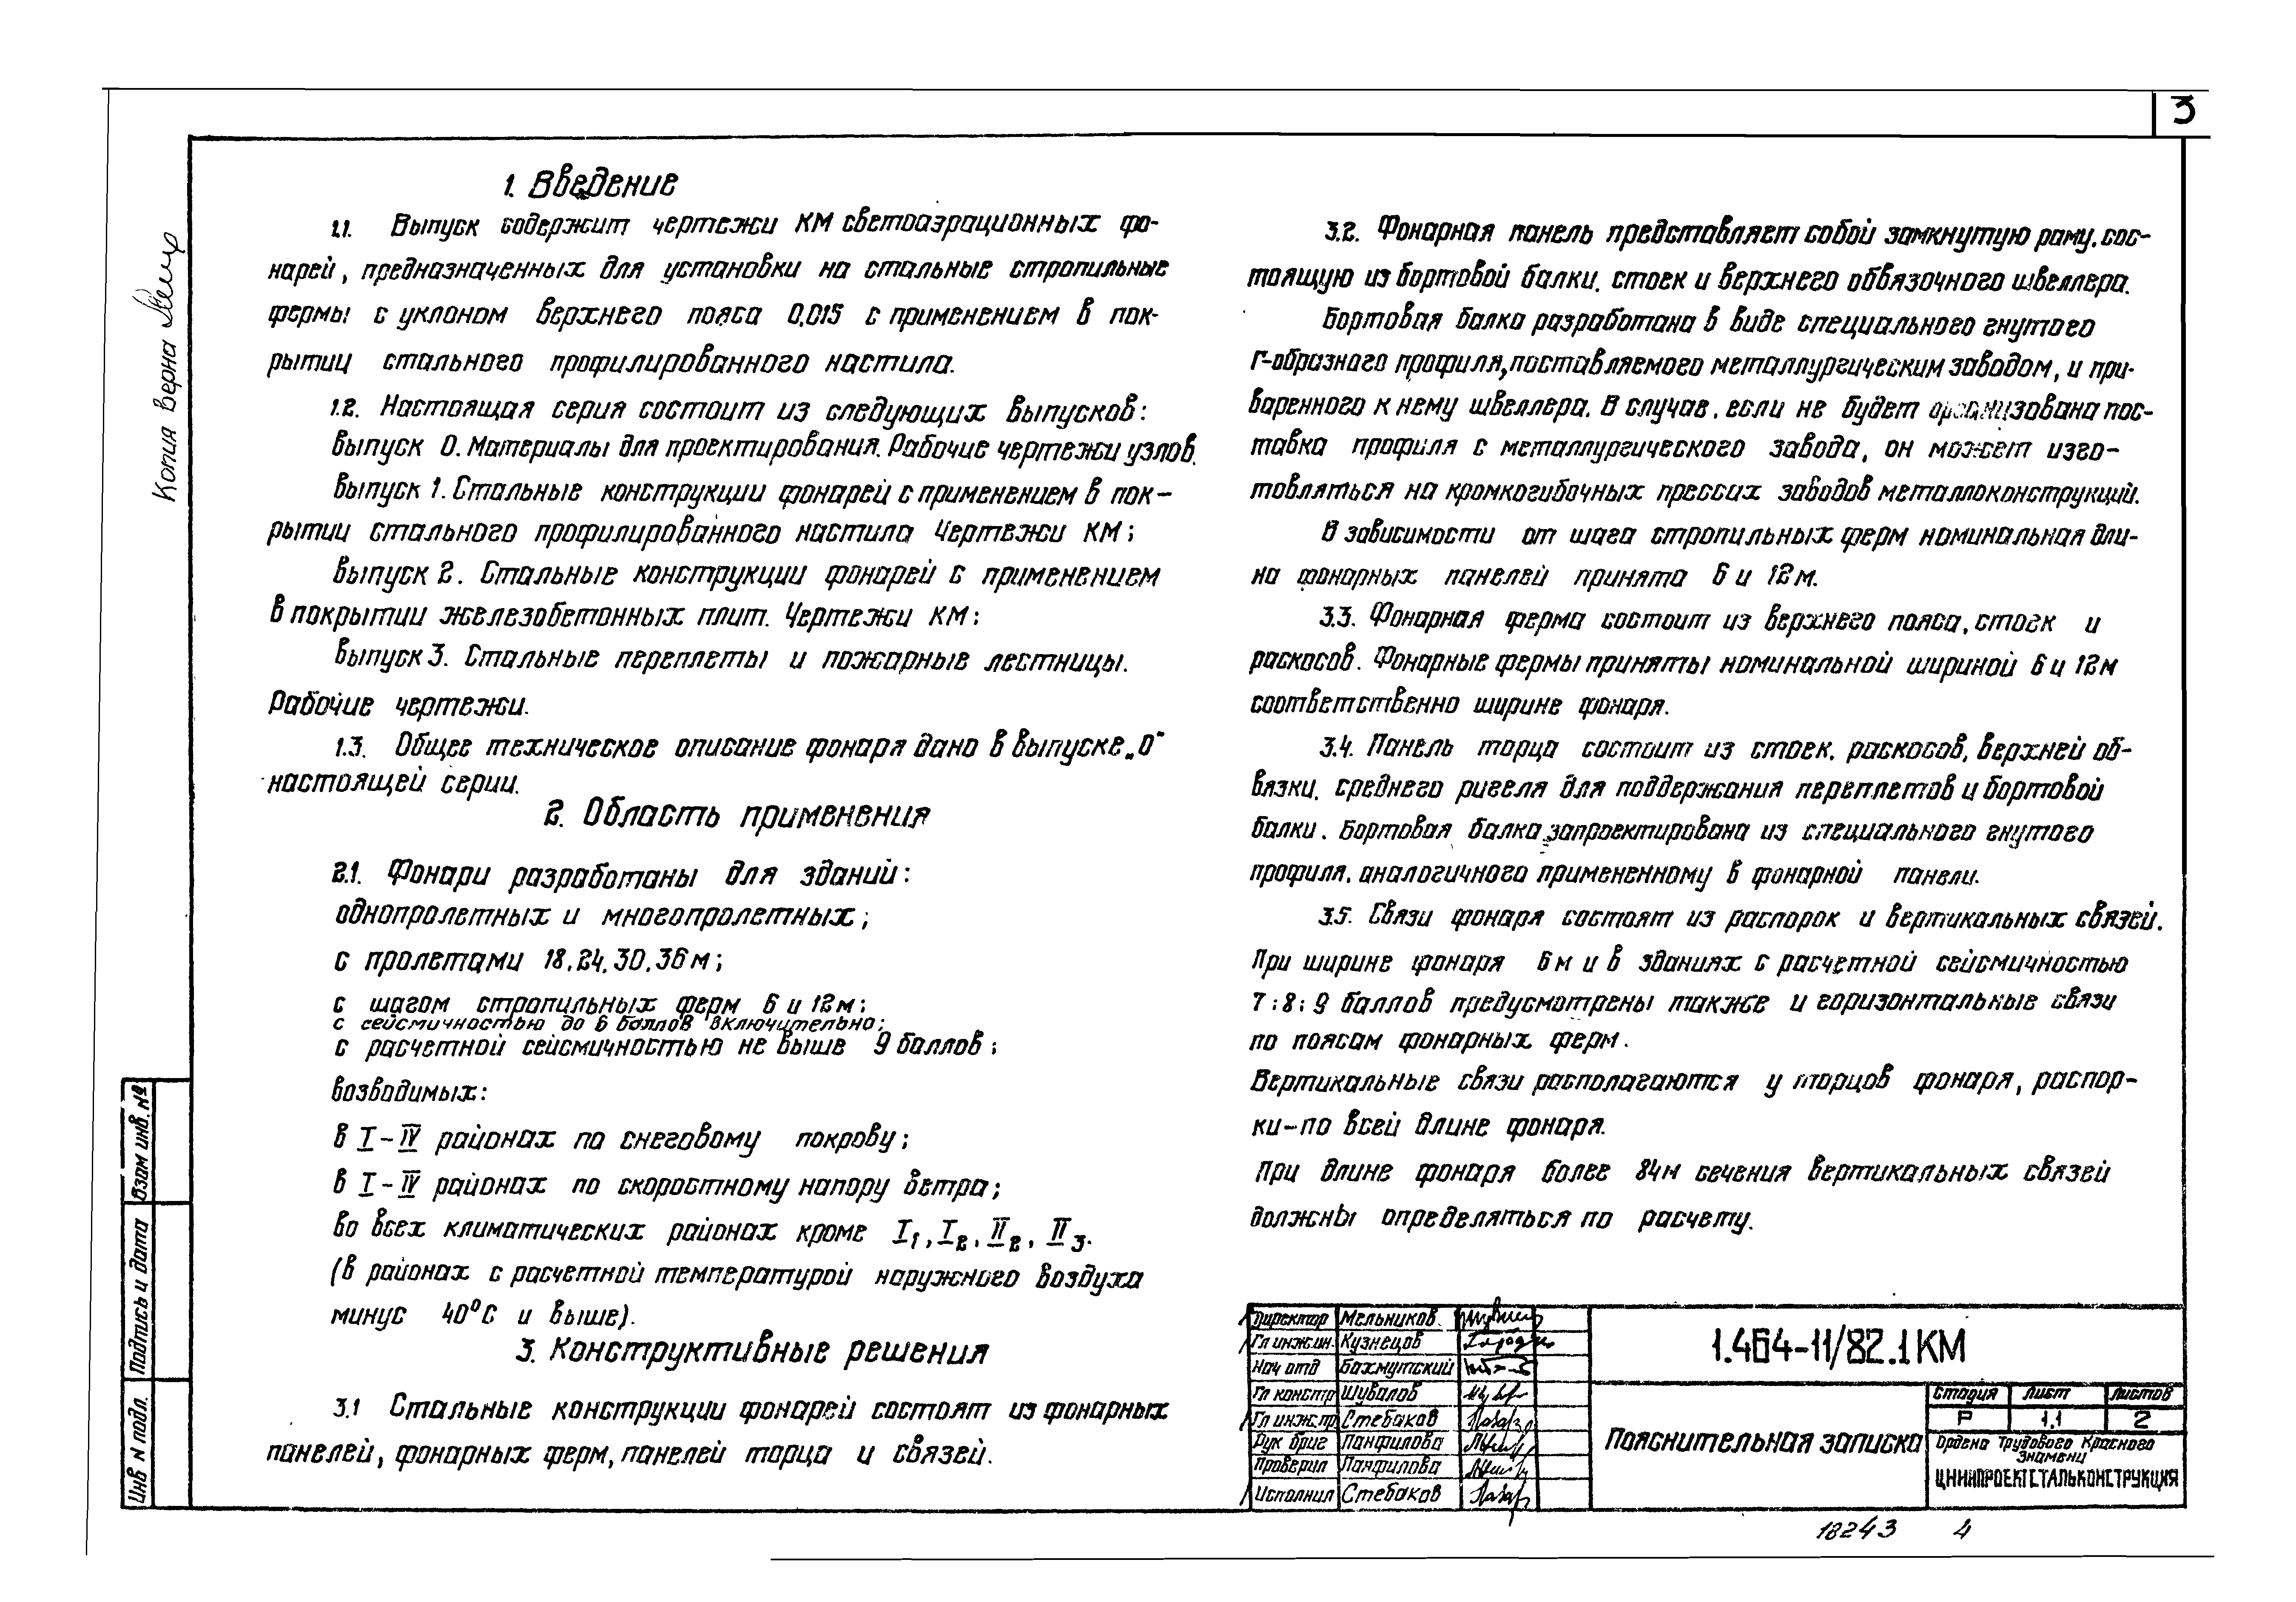 3
Копия верна
1. Введение
1.1. Выпуск содержит чертежи КМ светоаэрационных фо-
нарей, предназначенных для установки на стальные стропильные
фермы с уклоном верхнего пояса 0,015 с применением в пок-
рытии стального профилированного настила.
1.2. Настоящая серия состоит из следующих выпусков:
выпуск 0. Материалы для проектирования. Рабочие чертежи узлов.
выпуск 1. Стальные конструкции фонарей с применением в пок-
рытии стального профилированного настила Чертежи КМ;
выпуск 2. Стальные конструкции фонарей с применением
в покрытии железобетонных плит. Чертежи КМ;
выпуск 3. Стальные переплеты и пожарные лестницы.
Рабочие чертежи.
1.3. Общее техническое описание фонаря дано в выпуске „0"
настоящей серии.
2. Область применения
2.1. Фонари разработаны для зданий:
однопролетных и многопролетных;
с пролетами 18, 24, 30, 36 м;
с шагом стропильных ферм 6 и 12 м;
с сейсмичностью до 6 баллов включительно;
с расчетной сейсмичностью не выше 9 баллов;
возводимых:
в I-IV районах по снеговому покрову;
в I-IV районах по скоростному напору ветра;
во всех климатических районах кроме I1, I2, II2, II3.
(в районах с расчетной температурой наружного воздуха
минус 40°С и выше).
3. Конструктивные решения
3.1 Стальные конструкции фонарей состоят из фонарных
панелей, фонарных ферм, панелей торца и связей.
3.2. Фонарная панель представляет собой замкнутую раму, сос-
тоящую из бортовой балки, стоек и верхнего обвязочного швеллера.
Бортовая балка разработана в виде специального гнутого
Г-образного профиля, поставляемого металлургическим заводом, и при-
варенного к нему швеллера. В случае, если не будет организована пос-
тавка профиля с металлургического завода, он может изго-
товляться на кромкогибочных прессах заводов металлоконструкций.
В зависимости от шага стропильных ферм номинальная дли-
на фонарных панелей принята 6 и 12 м.
3.3. Фонарная ферма состоит из верхнего пояса, стоек и
раскосов. Фонарные фермы приняты номинальной шириной 6 и 12 м
соответственно ширине фонаря.
3.4. Панель торца состоит из стоек, раскосов, верхней об-
вязки, среднего ригеля для поддержания переплетов и бортовой
балки. Бортовая балка запроектирована из специального гнутого
профиля, аналогичного примененному в фонарной панели.
3.5. Связи фонаря состоят из распорок и вертикальных связей.
При ширине фонаря 6 м и в зданиях с расчетной сейсмичностью
7; 8; 9 баллов предусмотрены также и горизонтальные связи
по поясам фонарных ферм.
Вертикальные связи располагаются у торцов фонаря, распор-
ки-по всей длине фонаря.
При длине фонаря более 84 м сечения вертикальных связей
должны определяться по расчету.
Взам инв. №
Подпись и дата
Инв N подл.
Директор Мельников
Гл инж.ин. Кузнецов
Нач отд Бахмутский
Гл констр Шувалов
Гл инж.пр. Стебаков
Рук бриг Панфилова
Проверил Панфилова
Исполнил Стебаков
1.464-11/82.1 КМ
Пояснительная записка
Стадия Лист Листов
Р 1.1 2
Ордена Трудового Красного
Знамени
ЦНИИПРОЕКТСТАЛЬКОНСТРУКЦИЯ
18243 4